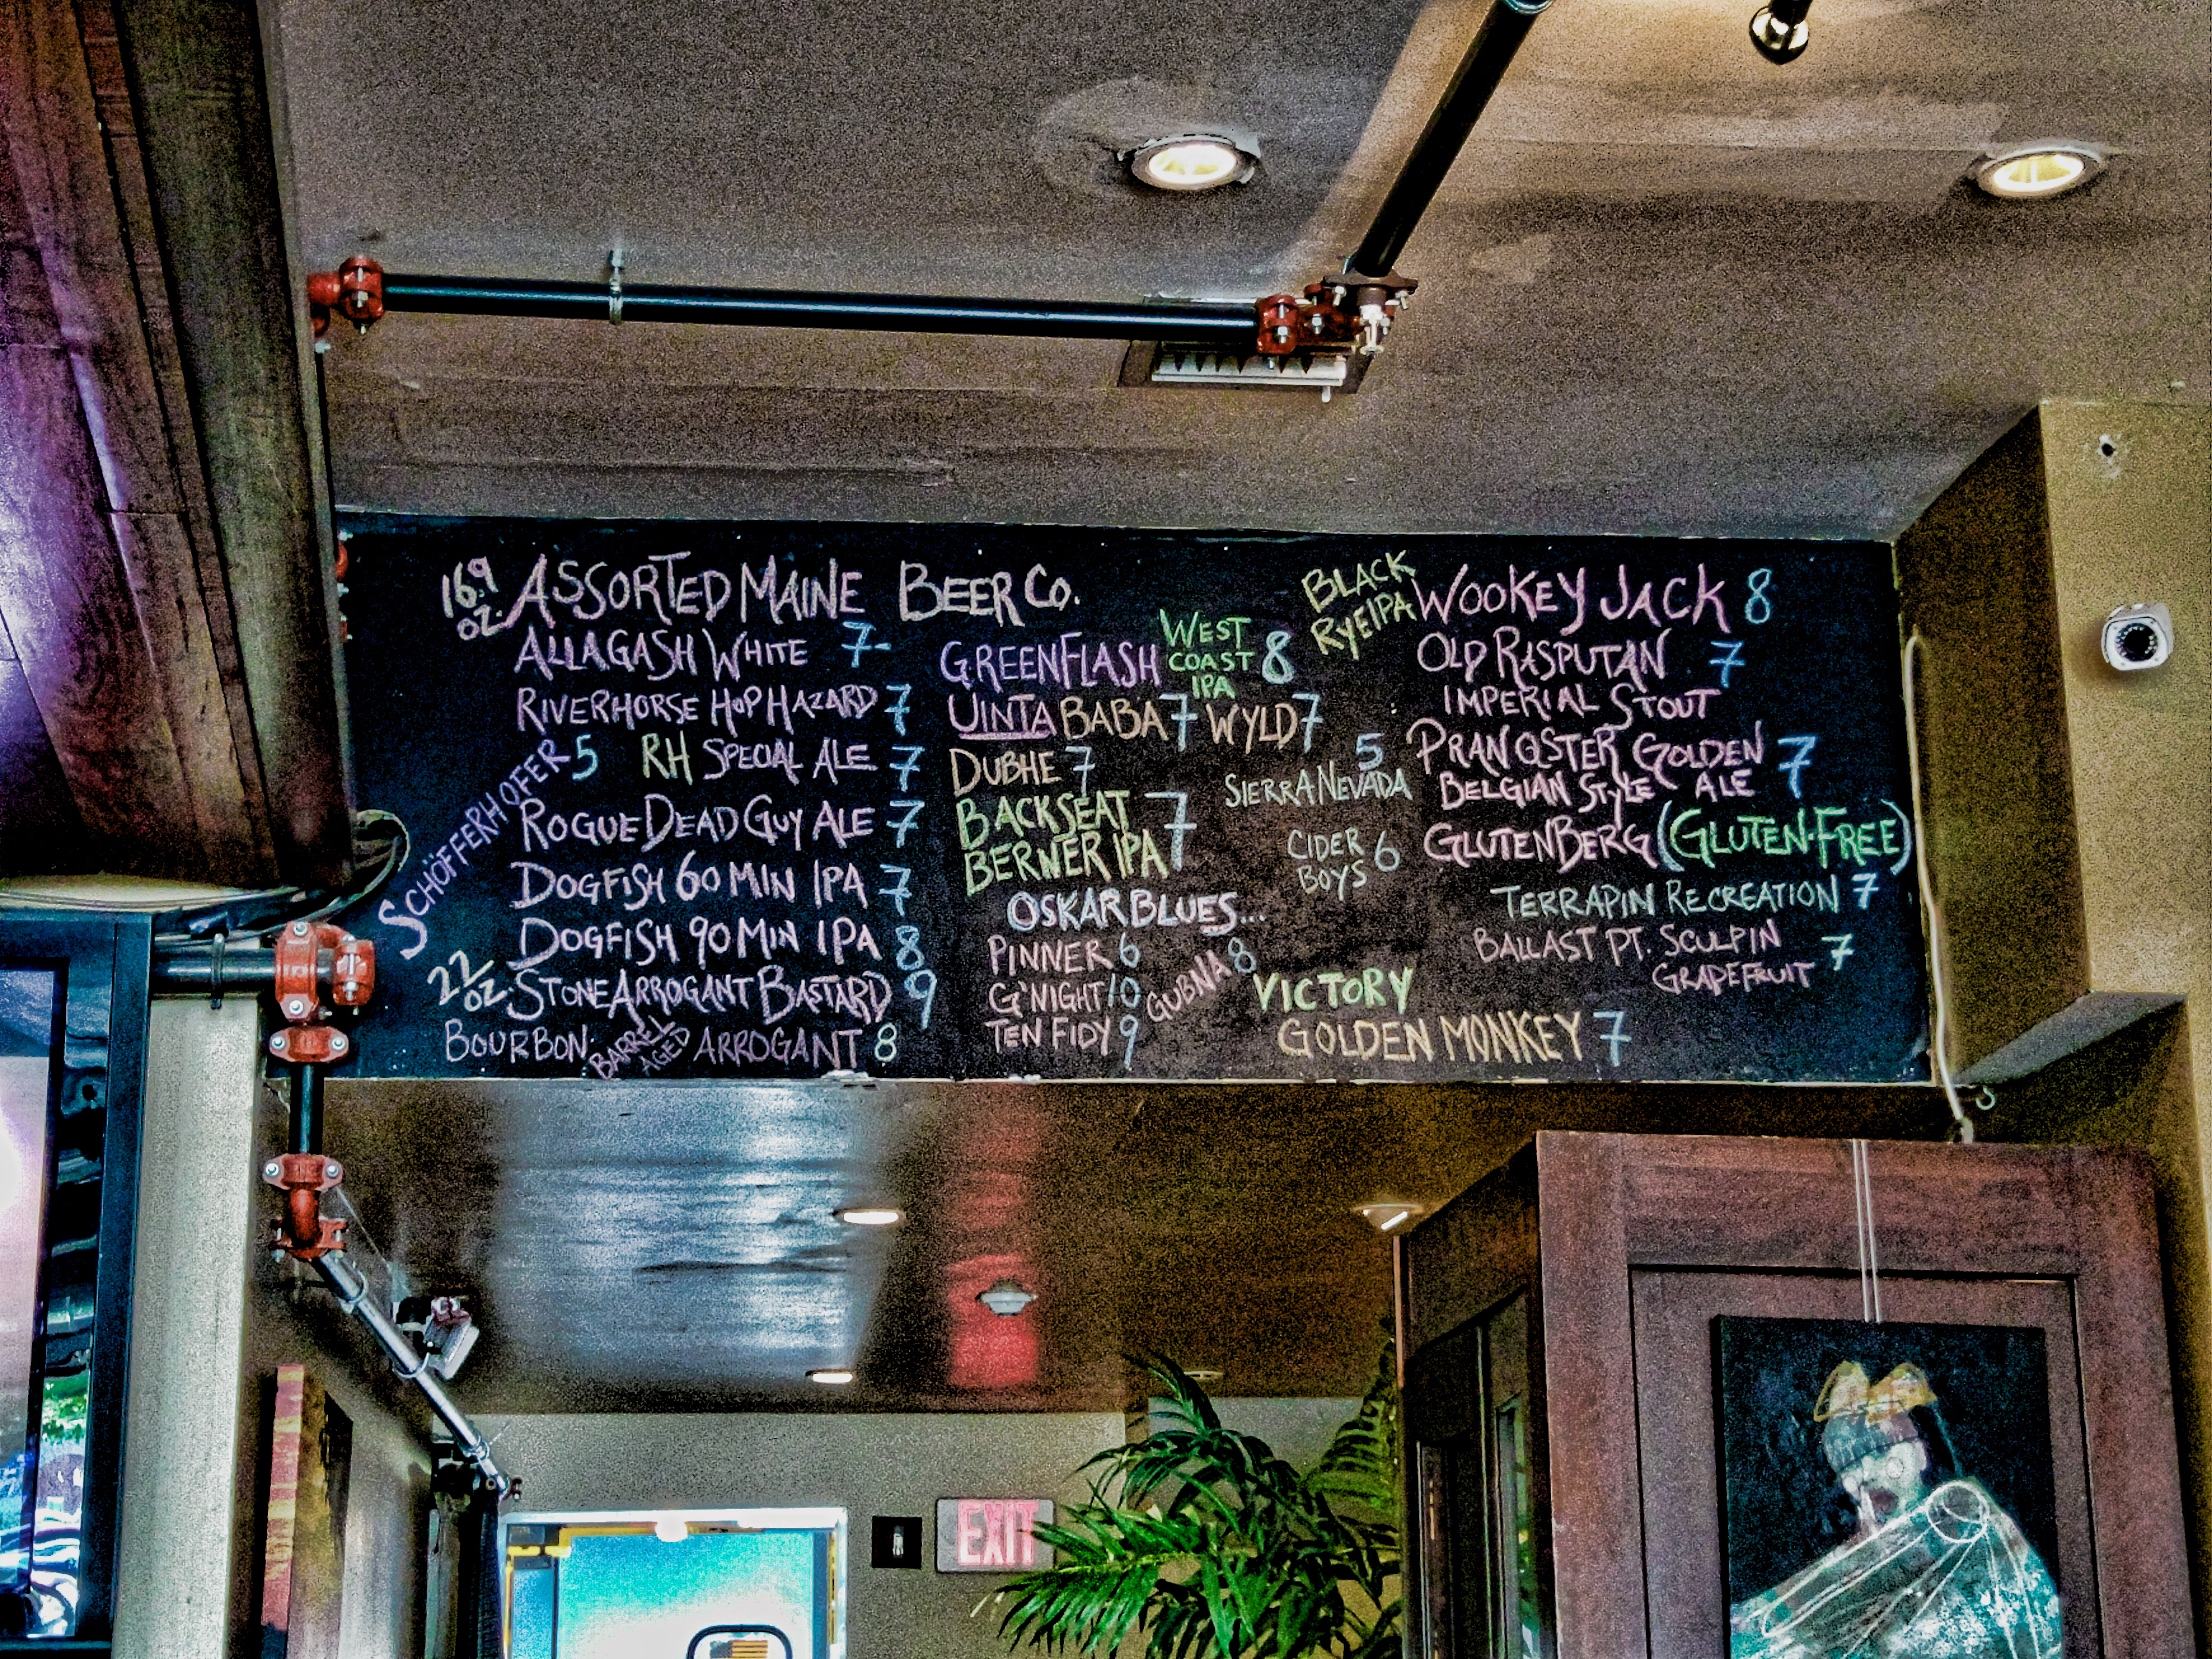 16.9 OZ. ASSORTED MAINE BEER CO.
ALLAGASH WHITE 7-
RIVERHORSE HOP HAZARD 7
SCHÖFFERHOFER 5
RH SPECIAL ALE 7
ROGUE DEAD GUY ALE 7
DOGFISH 60 MIN IPA 7
DOGFISH 90 MIN IPA 8
22 OZ. STONE ARROGANT BASTARD 9
BOURBON BARREL AGED ARROGANT 8
GREENFLASH WEST COAST IPA 8
UINTA BABA 7 WYLD 7
DUBHE 7
BACKSEAT
BERNER IPA 7
OSKAR BLUES...
PINNER 6
G'NIGHT 10
TEN FIDY 9
GUBNA 8
5
SIERRA NEVADA
CIDER
BOYS 6
VICTORY
GOLDEN MONKEY 7
BLACK
RYE IPA
WOOKEY JACK 8
OLD RASPUTAN 7
IMPERIAL STOUT
PRANQSTER GOLDEN
BELGIAN STYLE ALE 7
GLUTENBERG (GLUTEN-FREE)
TERRAPIN RECREATION 7
BALLAST PT. SCULPIN
GRAPEFRUIT 7
EXIT